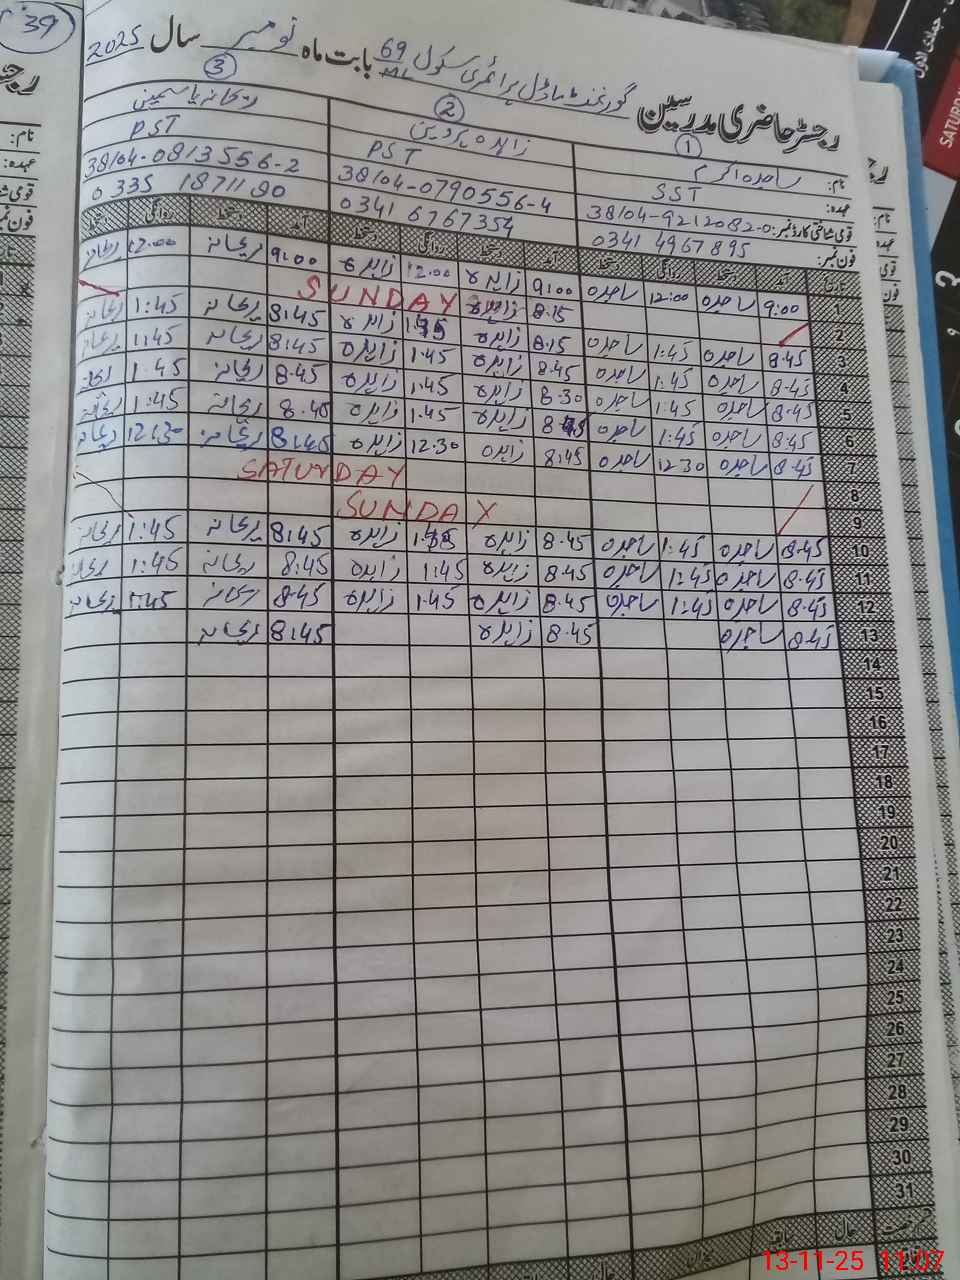 رجسٹر حاضری مدرسین گورنمنٹ ماڈل پرائمری سکول 69 ML بابت ماہ نومبر سال 2025
① ② ③
نام: ساجدہ اکرم زاہدہ پروین ریحانہ یاسمین
عہدہ: SST PST PST
قومی شناختی کارڈ نمبر: 38104-9212082-0 38104-0790556-4 38104-0813556-2
فون نمبر: 0341 4967895 0341 6767354 0335 1871190
تاریخ آمد دستخط روانگی دستخط آمد دستخط روانگی دستخط آمد دستخط روانگی دستخط
1 9:00 ساجدہ 12:00 ساجدہ 9:00 زاہدہ 12:00 زاہدہ 9:00 ریحانہ 12:00 ریحانہ
2 SUNDAY
3 8:45 ساجدہ 1:45 ساجدہ 8:15 زاہدہ زاہدہ 8:45 ریحانہ 1:45 ریحانہ
4 8:45 ساجدہ 1:45 ساجدہ 8:15 زاہدہ 1:45 زاہدہ 8:45 ریحانہ 1:45 ریحانہ
5 8:45 ساجدہ 1:45 ساجدہ 8:45 زاہدہ 1:45 زاہدہ 8:45 ریحانہ 1:45 ریحانہ
6 8:45 ساجدہ 1:45 ساجدہ 8:30 زاہدہ 1:45 زاہدہ 8:45 ریحانہ 1:45 ریحانہ
7 8:45 ساجدہ 12:30 ساجدہ 8:45 زاہدہ 12:30 زاہدہ 8:45 ریحانہ 12:30 ریحانہ
8 SATURDAY
9 SUNDAY
10 8:45 ساجدہ 1:45 ساجدہ 8:45 زاہدہ زاہدہ 8:45 ریحانہ 1:45 ریحانہ
11 8:45 ساجدہ 1:45 ساجدہ 8:45 زاہدہ 1:45 زاہدہ 8:45 ریحانہ 1:45 ریحانہ
12 8:45 ساجدہ 1:45 ساجدہ 8:45 زاہدہ 1:45 زاہدہ 8:45 ریحانہ 1:45 ریحانہ
13 8:45 ساجدہ 8:45 زاہدہ 8:45 ریحانہ
14
15
16
17
18
19
20
21
22
23
24
25
26
27
28
29
30
31
39
SATURDAY
13-11-25 11:07